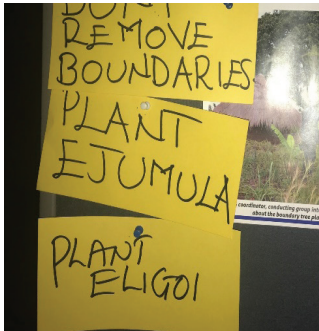 DONT
REMOVE
BOUNDARIES.
PLANT
EJUMULA
PLANT
ELIGOI
coordinator, conducting group
about the boundary tree